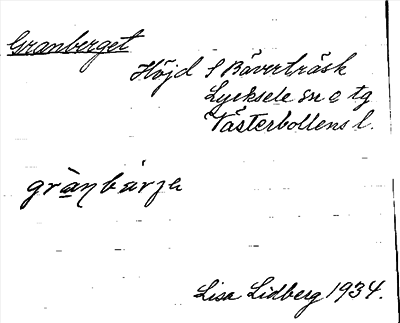 Granberget
Höjd S Bäverträsk
Lycksele sn o tg
Västerbottens l.
grànbárje
Lisa Lidberg 1934.